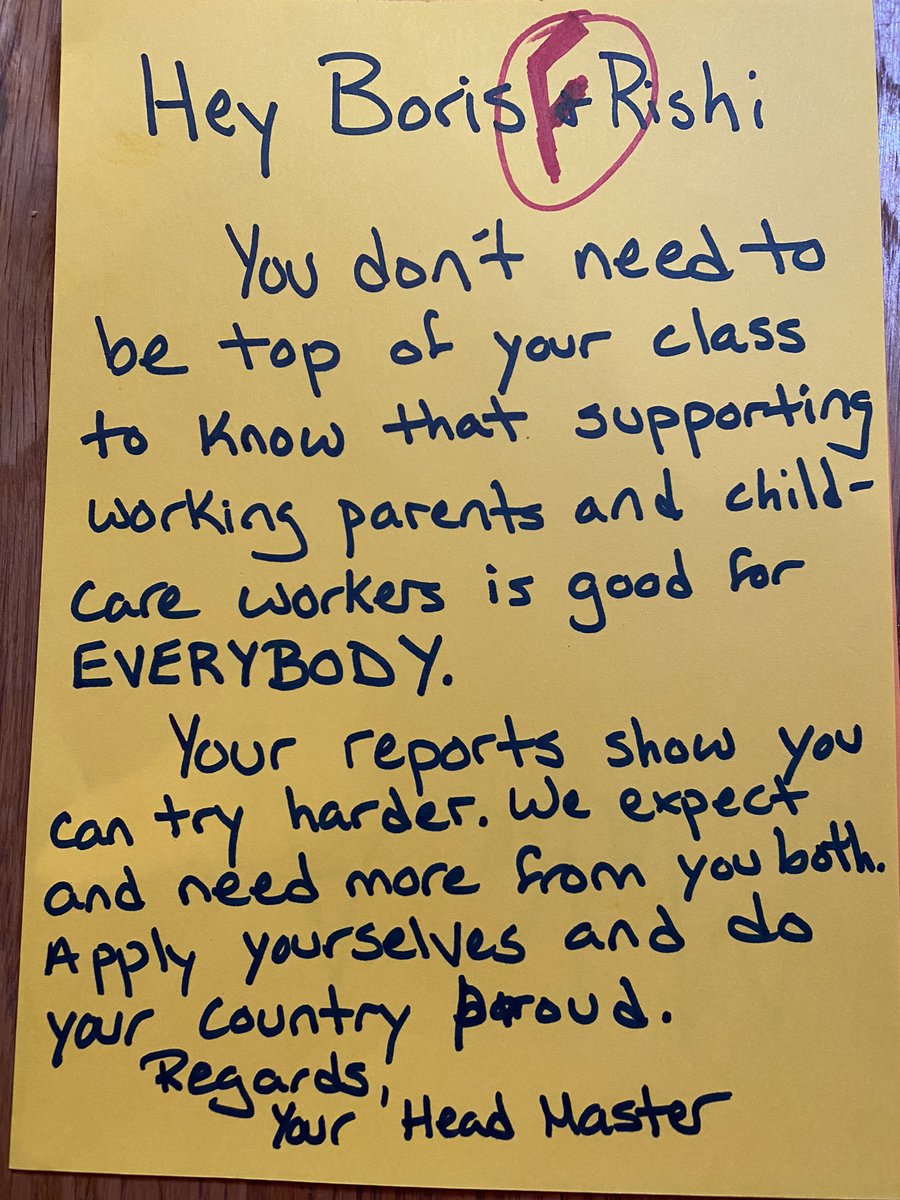 Hey Boris & Rishi
F
You don't need to
be top of your class
to know that supporting
working parents and child-
care workers is good for
EVERYBODY.
Your reports show you
can try harder. We expect
and need more from you both.
Apply yourselves and do
your country proud.
Regards,
Your Head Master